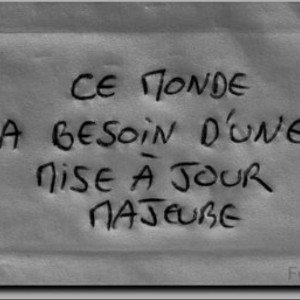 CE MONDE
A BESOIN D'UNE
MISE À JOUR
MAJEURE